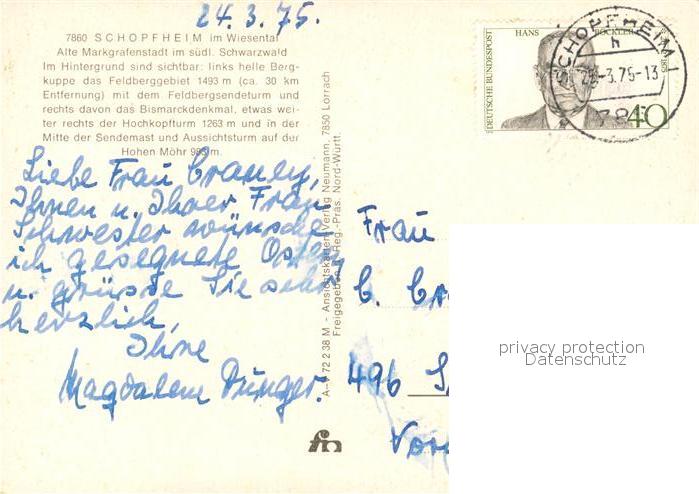 24.3.75.
7860 SCHOPFHEIM im Wiesental
Alte Markgrafenstadt im südl. Schwarzwald
Im Hintergrund sind sichtbar: links helle Berg-
kuppe das Feldberggebiet 1493 m (ca. 30 km
Entfernung) mit dem Feldbergsendeturm und
rechts davon das Bismarckdenkmal, etwas wei-
ter rechts der Hochkopfturm 1263 m und in der
Mitte der Sendemast und Aussichtsturm auf der
Hohen Möhr 983 m.
Liebe Frau Craney,
Ihnen u. Ihrer Frau
Schwester wünsche
ich gesegnete Ostern
u. grüsse Sie sehr
herzlich,
Ihre
Magdalena Dünger.
A-7 72 2 38 M - Ansichtskarten-Verlag Neumann, 7850 Lörrach
Freigegeben Reg.-Präs. Nord-Württ.
DEUTSCHE BUNDESPOST
HANS BÖCKLER
40
SCHOPFHEIM 1
h
-3.75-13
78
Frau
C. Cra
496 S
privacy protection
Datenschutz